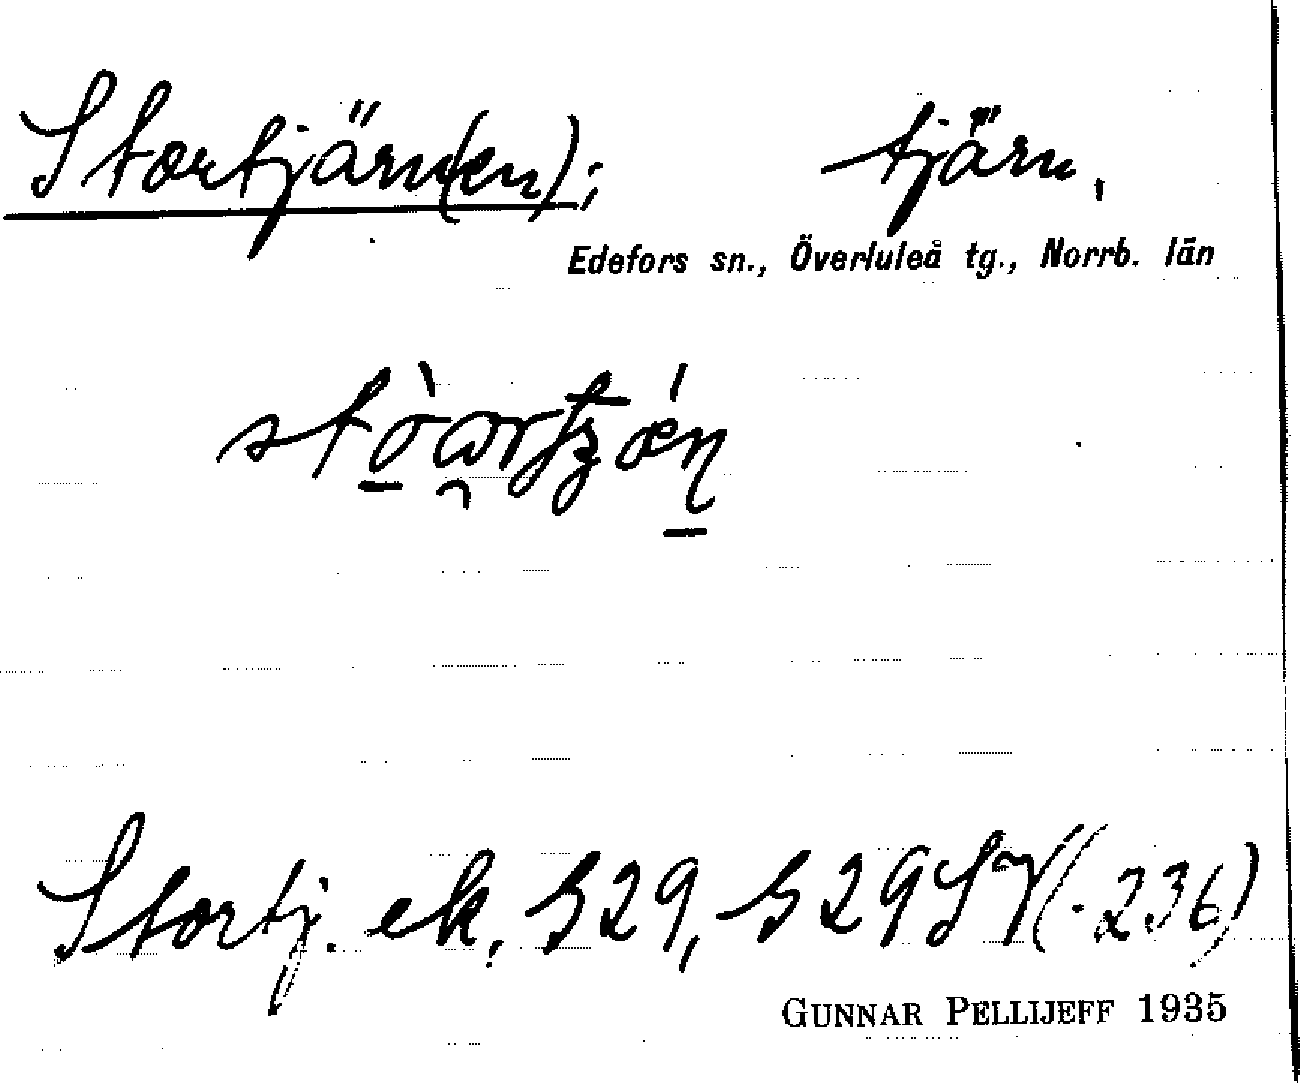 Stortjärn(en); tjärn,
Edefors sn., Överluleå tg., Norrb. län
Stortj. ek. 329, 329 SV (236)
GUNNAR PELLIJEFF 1935